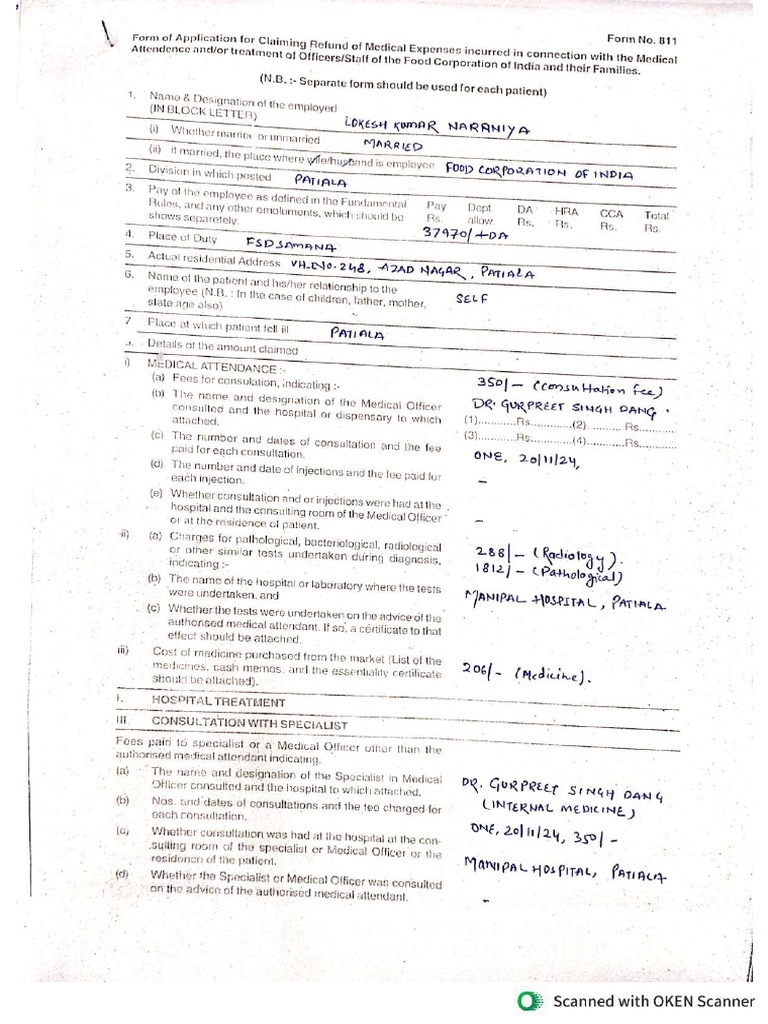 Form No. 811
Form of Application for Claiming Refund of Medical Expenses incurred in connection with the Medical
Attendence and/or treatment of Officers/Staff of the Food Corporation of India and their Families.
(N.B. :- Separate form should be used for each patient)
1. Name & Designation of the employed
(IN BLOCK LETTER) LOKESH KUMAR NARANIYA
(i) Whether married or unmarried MARRIED
(ii) if married, the place where wife/husband is employee FOOD CORPORATION OF INDIA
2. Division in which posted PATIALA
3. Pay of the employee as defined in the Fundamental Pay Dept. DA HRA CCA Total
Rules, and any other emoluments, which should be Rs. allow Rs. Rs. Rs. Rs.
shows separetely. 37970/+DA
4. Place of Duty FSD SAMANA
5. Actual residential Address VH.No.248, AZAD NAGAR, PATIALA
6. Name of the patient and his/her relationship to the
employee (N.B. : In the case of children, father, mother, SELF
state age also)
7 Place at which patient fell ill PATIALA
Details of the amount claimed
i) MEDICAL ATTENDANCE :-
(a) Fees for consulation, indicating :- 350/- (consultation fee)
(b) The name and designation of the Medical Officer DR. GURPREET SINGH DANG.
consulted and the hospital or dispensary to which (1)..........Rs............(2)...........Rs...........
attached. (3)..........Rs............(4)...........Rs...........
(c) The number and dates of consultation and the fee
paid for each consultation. ONE, 20/11/24,
(d) The number and date of injections and the fee paid for
each injection. -
(e) Whether consultation and or injections were had at the
hospital and the consulting room of the Medical Officer
or at the residence of patient. -
ii) (a) Charges for pathological, bacteriological, radiological
or other similar tests undertaken during diagnosis, 288/- (Radiology).
indicating :- 1812/- (Pathological)
(b) The name of the hospital or laboratory where the tests
were undertaken, and MANIPAL HOSPITAL, PATIALA
(c) Whether the tests were undertaken on the advice of the
authorised medical attendant. If so, a certificate to that
effect should be attached.
iii) Cost of medicine purchased from the market (List of the
medicines, cash memos, and the essentiality certificate 206/- (Medicine).
should be attached).
I. HOSPITAL TREATMENT
III. CONSULTATION WITH SPECIALIST
Fees paid to specialist or a Medical Officer other than the
authorised medical attendant indicating.
(a) The name and designation of the Specialist in Medical DR. GURPREET SINGH DANG
Officer consulted and the hospital to which attached. (INTERNAL MEDICINE)
(b) Nos. and dates of consultations and the fee charged for
each consultation. ONE, 20/11/24, 350/-
(c) Whether consultation was had at the hospital at the con-
sulting room of the specialist or Medical Officer or the MANIPAL HOSPITAL, PATIALA
residence of the patient.
(d) Whether the Specialist or Medical Officer was consulted
on the advice of the authorised medical attendant. -
Scanned with OKEN Scanner